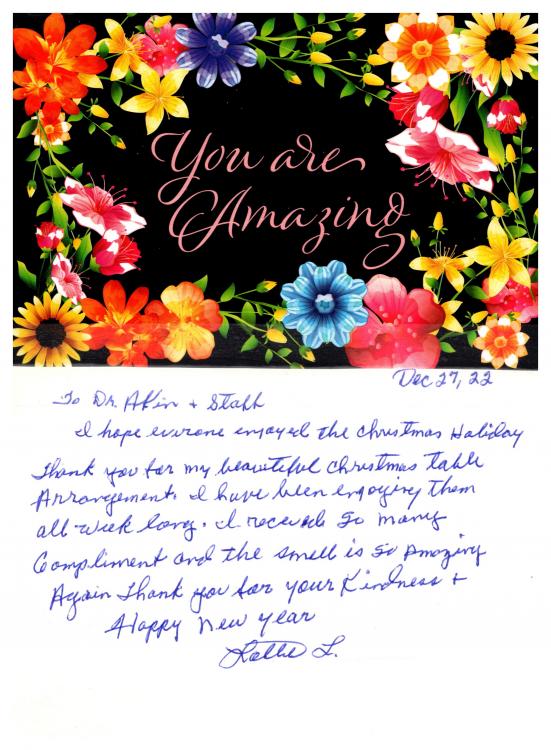 You are
Amazing
Dec 27, 22
To Dr. Akin + Staff
I hope everone enjoyed the Christmas Holiday
Thank you for my beautiful Christmas table
Arrangement. I have been enjoying them
all week long. I received so many
Compliment and the smell is so Amazing
Again Thank you for your Kindness +
Happy New Year
L.